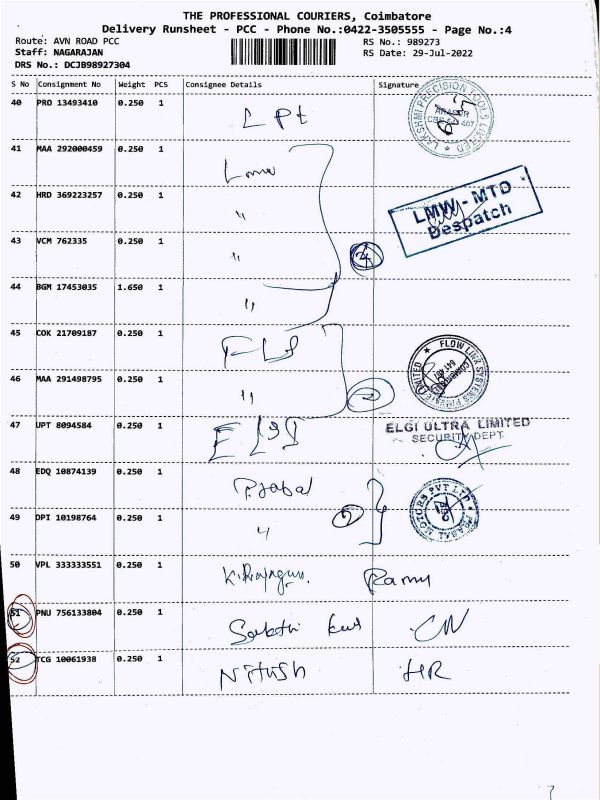 THE PROFESSIONAL COURIERS, Coimbatore
Delivery Runsheet - PCC - Phone No.:0422-3505555 - Page No.:4
Route: AVN ROAD PCC
RS No.: 989273
Staff: NAGARAJAN
RS Date: 29-Jul-2022
DRS No.: DCJB98927304
S No Consignment No Weight PCS Consignee Details Signature
40 PRO 13493410 0.250 1 LPt
LAKSHMI PRECISION TOOLS LIMITED
41 MAA 292000459 0.250 1 Lmw
42 HRD 369223257 0.250 1 "
LMW - MTD
Despatch
43 VCM 762335 0.250 1 "
44 BGM 17453035 1.650 1 "
45 COK 21709187 0.250 1 FLS
FLOW LINK SYSTEMS PRIVATE LIMITED
46 MAA 291498795 0.250 1 "
47 UPT 8094584 0.250 1
ELGI ULTRA LIMITED
SECURITY DEPT.
48 EDQ 10874139 0.250 1 Prabal
PRABAL MOTORS PVT LTD
49 DPI 10198764 0.250 1 "
50 VPL 333333551 0.250 1 Ramu
51 PNU 756133804 0.250 1
52 TCG 10061938 0.250 1 Nitush HR